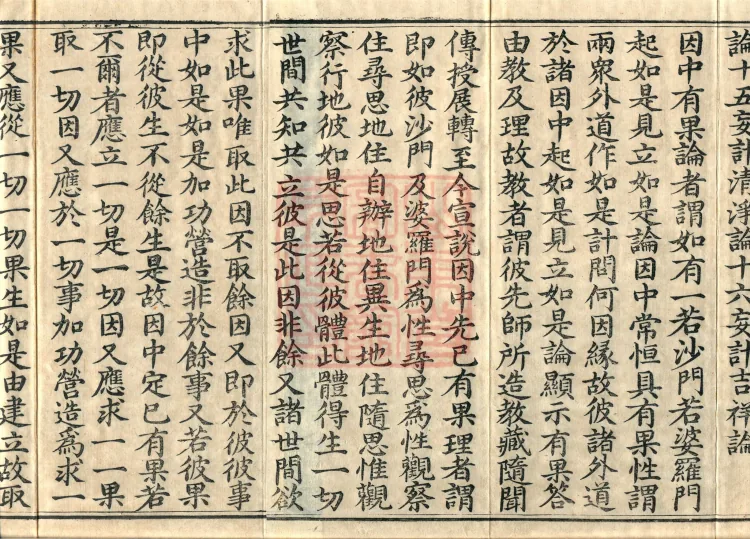 論十五妄計清淨論十六妄計吉祥論
因中有果論者謂如有一若沙門若婆羅門
起如是見立如是論因中常恒具有果性謂
兩衆外道作如是計問何因緣故彼諸外道
於諸因中起如是見立如是論顯示有果答
由教及理故教者謂彼先師所造教藏隨聞
傳授展轉至今宣說因中先已有果理者謂
即如彼沙門及婆羅門為性尋思為性觀察
住尋思地住自辦地住異生地住隨思惟觀
察行地彼如是思若從彼體此體得生一切
世間共知共立彼是此因非餘又諸世間欲
求此果唯取此因不取餘因又即於彼彼事
中如是如是加功營造非於餘事又若彼果
即從彼生不從餘生是故因中定已有果若
不爾者應立一切是一切因又應求一一果
取一切因又應於一切事加功營造為求一
果又應從一切一切果生如是由建立故取